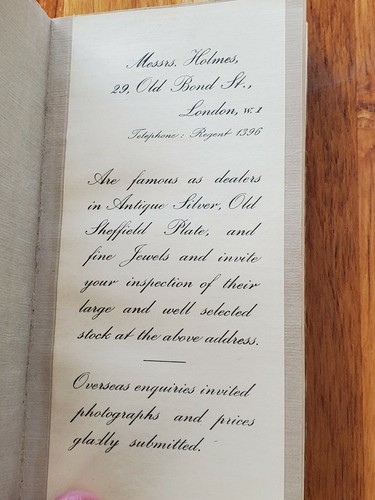 Messrs. Holmes,
29, Old Bond St.,
London, W.1
Telephone: Regent 1396
Are famous as dealers
in Antique Silver, Old
Sheffield Plate, and
fine Jewels and invite
your inspection of their
large and well selected
stock at the above address.
Overseas enquiries invited
photographs and prices
gladly submitted.